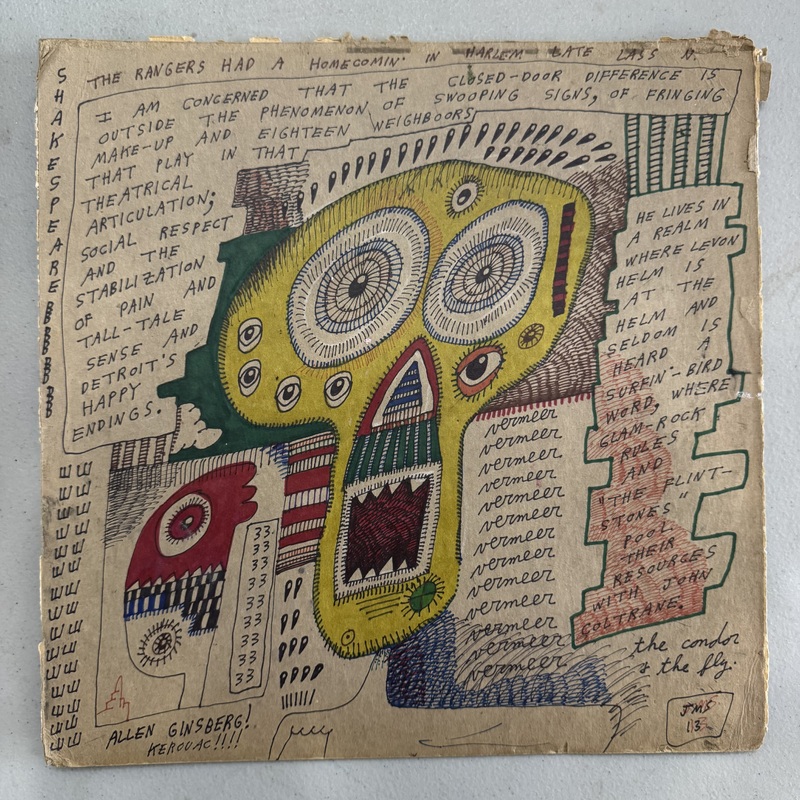 THE RANGERS HAD A HOMECOMIN' IN HARLEM LATE LASS N.
SHAKESPEARE
I AM CONCERNED THAT THE CLOSED-DOOR DIFFERENCE IS
OUTSIDE THE PHENOMENON OF SWOOPING SIGNS, OF FRINGING
MAKE-UP AND EIGHTEEN WEIGHBOORS
THAT PLAY IN THAT
THEATRICAL
ARTICULATION;
SOCIAL RESPECT
AND THE
STABILIZATION
OF PAIN AND
TALL-TALE
SENSE AND
DETROIT'S
HAPPY
ENDINGS.
HE LIVES IN
A REALM
WHERE LEVON
HELM IS
AT THE
HELM AND
SELDOM IS
HEARD A
SURFIN'-BIRD
WORD, WHERE
GLAM-ROCK
RULES
AND
"THE FLINT-
STONES"
POOL
THEIR
RESOURCES
WITH JOHN
COLTRANE.
vermeer
vermeer
vermeer
vermeer
vermeer
vermeer
vermeer
vermeer
vermeer
vermeer
vermeer
vermeer
vermeer
33
33
33
33
33
33
33
33
33
33
33
PP
PPP
PPP
PPPP
the condor
& the fly.
ALLEN GINSBERG!
KEROUAC!!!!
JMS
13